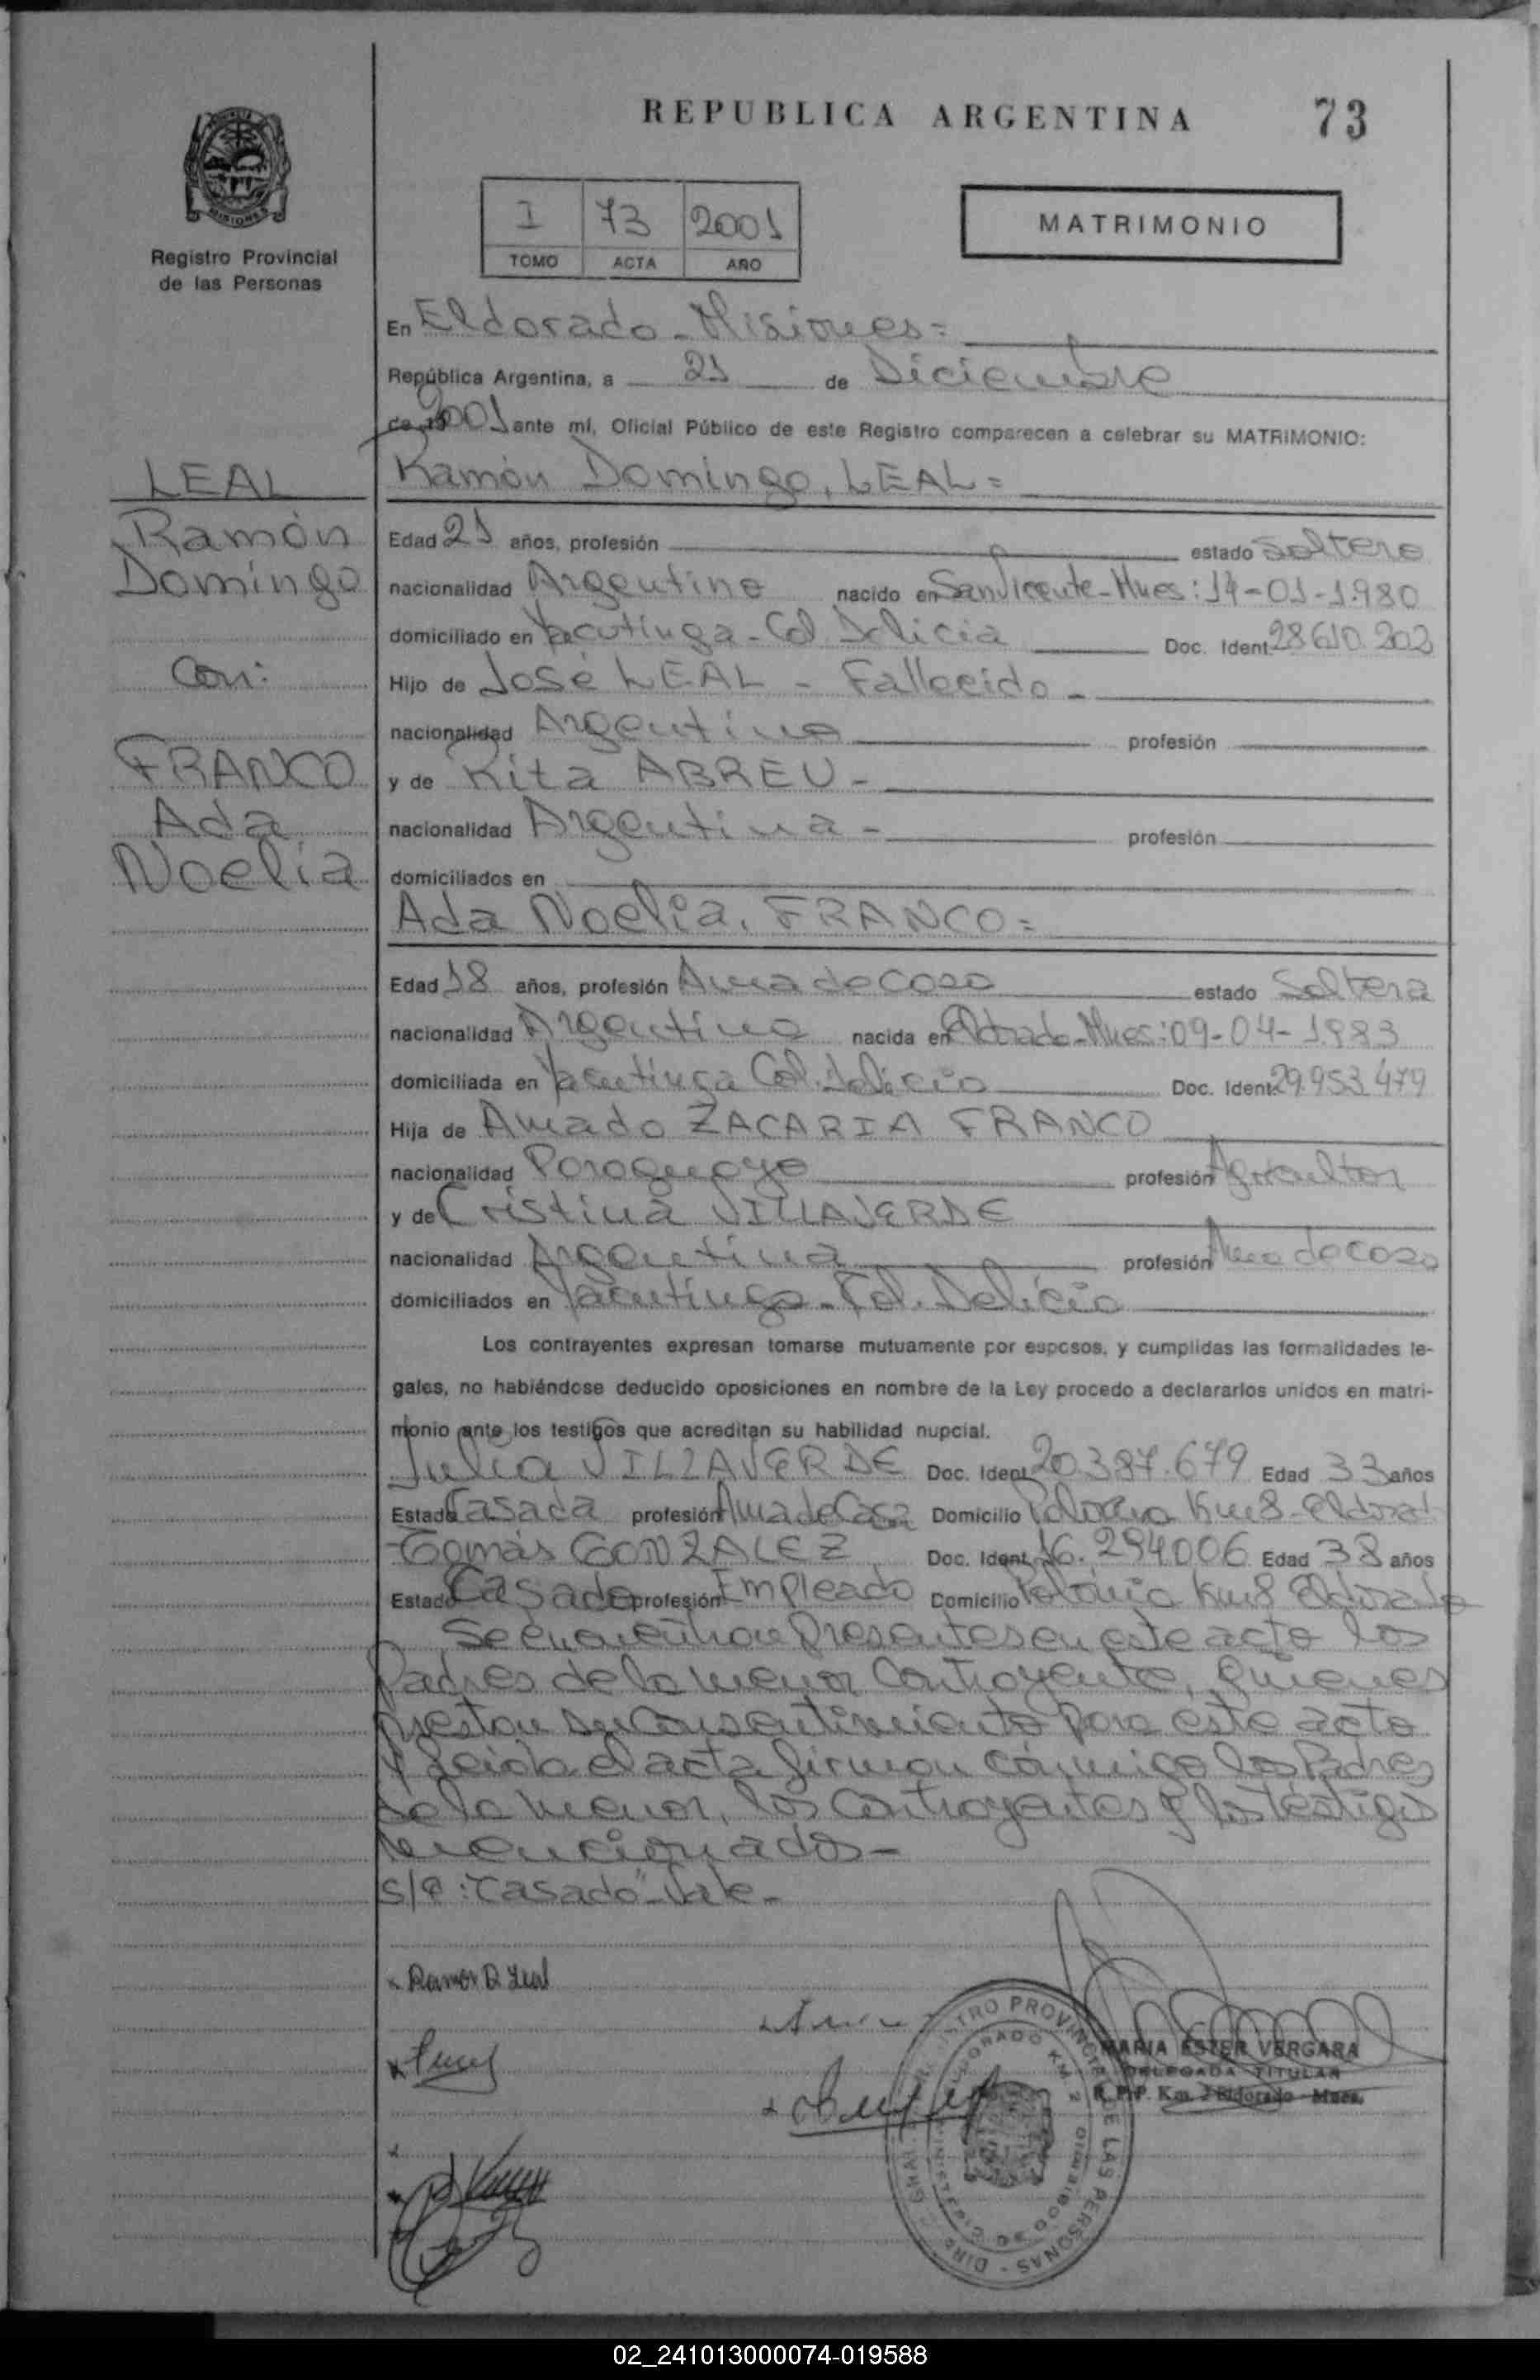 REPUBLICA ARGENTINA 73
MISIONES
Registro Provincial
de las Personas
I 73 2001
TOMO ACTA AÑO
MATRIMONIO
En Eldorado - Misiones =
República Argentina, a 21 de Diciembre
de 2001 ante mí, Oficial Público de este Registro comparecen a celebrar su MATRIMONIO:
LEAL
Ramón
Domingo
con:
FRANCO
Ada
Noelia
Ramón Domingo, LEAL =
Edad 21 años, profesión estado Soltero
nacionalidad Argentino nacido en San Vicente - Mnes: 14-01-1.980
domiciliado en Yacutinga - Col. Delicia Doc. Ident. 28.610.202
Hijo de José LEAL - Fallecido -
nacionalidad Argentino profesión
y de Rita ABREU -
nacionalidad Argentina - profesión
domiciliados en
Ada Noelia, FRANCO =
Edad 18 años, profesión Ama de Casa estado Soltera
nacionalidad Argentina nacida en Eldorado - Mnes: 09-04-1.983
domiciliada en Yacutinga Col. Delicia Doc. Ident. 29.953.479
Hija de Amado ZACARIA FRANCO
nacionalidad Paraguayo profesión Agricultor
y de Cristina VILLAVERDE
nacionalidad Argentina profesión Ama de casa
domiciliados en Yacutinga - Col. Delicia
Los contrayentes expresan tomarse mutuamente por esposos, y cumplidas las formalidades le-
gales, no habiéndose deducido oposiciones en nombre de la Ley procedo a declararlos unidos en matri-
monio ante los testigos que acreditan su habilidad nupcial.
Julia VILLAVERDE Doc. Ident. 20.387.679 Edad 33 años
Estado Casada profesión Ama de Casa Domicilio Polonia Km8 - Eldorad
Tomás GONZALEZ Doc. Ident. 16.294006 Edad 38 años
Estado Casado profesión Empleado Domicilio Polonia Km8 Eldorado
Se encuentran Presentes en este acto los
Padres de la menor Contrayente, quienes
prestan su consentimiento para este acto
y leida el acta firman conmigo los Padres
de la menor, los Contrayentes y los testigos
mencionados -
s/r: "Casado" Vale -
Ramon D Leal
MARIA ESTER VERGARA
DELEGADA TITULAR
R. P. P. Km. 2 Eldorado - Mnes.
REGISTRO PROVINCIAL DE LAS PERSONAS
ELDORADO KM 2
02_241013000074-019588